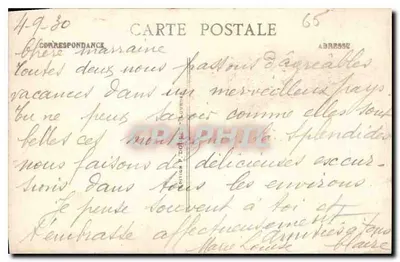 4-9-30
65
CARTE POSTALE
CORRESPONDANCE
ADRESSE
Chère marraine
Toutes deux nous passons d'agréables
vacances dans un merveilleux pays
Tu ne peux savoir comme elles sont
belles ces montagnes splendides
nous faisons de délicieuses excur-
sions dans tous les environs
Je pense souvent à toi et
t'embrasse affectueusement
Amitiés à tous
Marie Louise
Claire